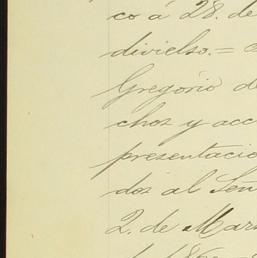 co á 28. de
divielso.=
Gregorio d
chos y acc
presentacio
dos al Señ
2. de Mar